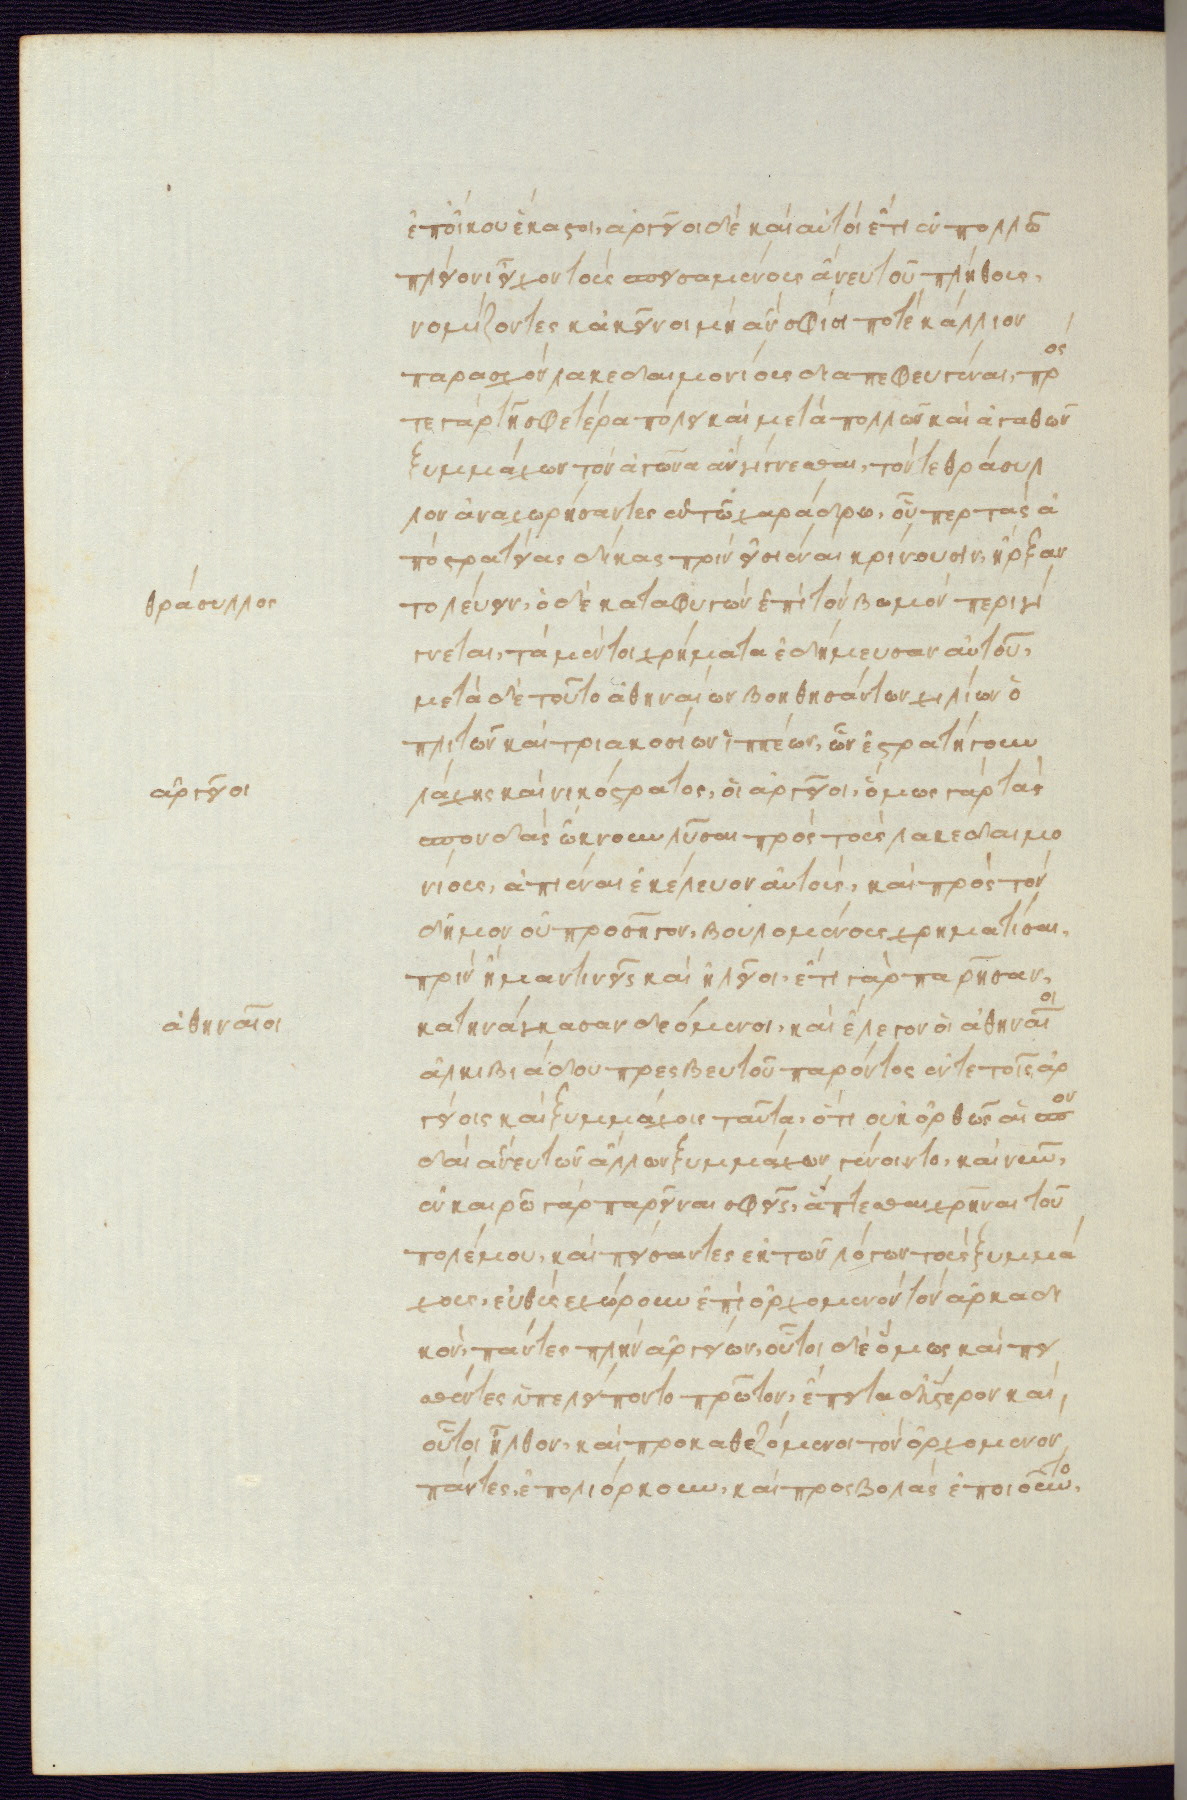 ἐπ' οἴκου ἕκαστοι, ἀργεῖοι δὲ καὶ αὐτοὶ ἔτι ἐν πολλῶ
πλείονι εἶχον τοὺς σπεισαμένους ἄνευ τοῦ πλήθους,
νομίζοντες κἀκεῖνοι μὴ ἂν σφίσι ποτὲ κάλλιον
παρασχὸν λακεδαιμονίους διαπεφευγέναι, πρός
τε γὰρ τῆ σφετέρα πόλει καὶ μετὰ πολλῶν καὶ ἀγαθῶν
ξυμμάχων τὸν ἀγῶνα ἂν γίγνεσθαι, τόν τε θράσυλ
λον ἀναχωρήσαντες ἐν τῶ χαράδρω, οὗπερ τὰς ἀ
πὸ στρατείας δίκας πρὶν εἰσιέναι κρίνουσιν, ἤρξαν
το λεύειν, ὁ δὲ καταφυγὼν ἐπὶ τὸν βωμὸν περιγί
θράσυλλος
γνεται, τὰ μέντοι χρήματα ἐδήμευσαν αὐτοῦ,
μετὰ δὲ τοῦτο ἀθηναίων βοηθησάντων χιλίων ὁ
πλιτῶν καὶ τριακοσίων ἱππέων, ὧν ἐστρατήγουν
λάχης καὶ νικόστρατος, οἱ ἀργεῖοι, ὅμως γὰρ τὰς
ἀργεῖοι
σπονδὰς ὤκνουν λῦσαι πρὸς τοὺς λακεδαιμο
νίους, ἀπιέναι ἐκέλευον αὐτοὺς, καὶ πρὸς τὸν
δῆμον οὐ προσῆγον, βουλομένους χρηματίσαι,
πρὶν ἢ μαντινεῖς καὶ ἠλεῖοι, ἔτι γὰρ παρῆσαν,
κατηνάγκασαν δεόμενοι, καὶ ἔλεγον οἱ ἀθηναῖοι
ἀθηναῖοι
ἀλκιβιάδου πρεσβευτοῦ παρόντος ἔν τε τοῖς ἀρ
γείοις καὶ ξυμμάχοις ταῦτα, ὅτι οὐκ ὀρθῶς αἱ σπον
δαὶ ἄνευ τῶν ἄλλων ξυμμάχων γένοιντο, καὶ νῦν,
ἐν καιρῶ γὰρ παρεῖναι σφεῖς, ἅπτεσθαι χρῆναι τοῦ
πολέμου, καὶ πείσαντες ἐκ τῶν λόγων τοὺς ξυμμά
χους, εὐθὺς ἐχώρουν ἐπὶ ὀρχομενὸν τὸν ἀρκαδι
κὸν, πάντες πλὴν ἀργείων, οὗτοι δὲ ὅμως καὶ πει
σθέντες ὑπελείποντο πρῶτον, ἔπειτα δ' ὕστερον καὶ
οὗτοι ἦλθον, καὶ προκαθεζόμενοι τὸν ὀρχομενὸν
πάντες, ἐπολιόρκουν, καὶ προσβολὰς ἐποιοῦντο,